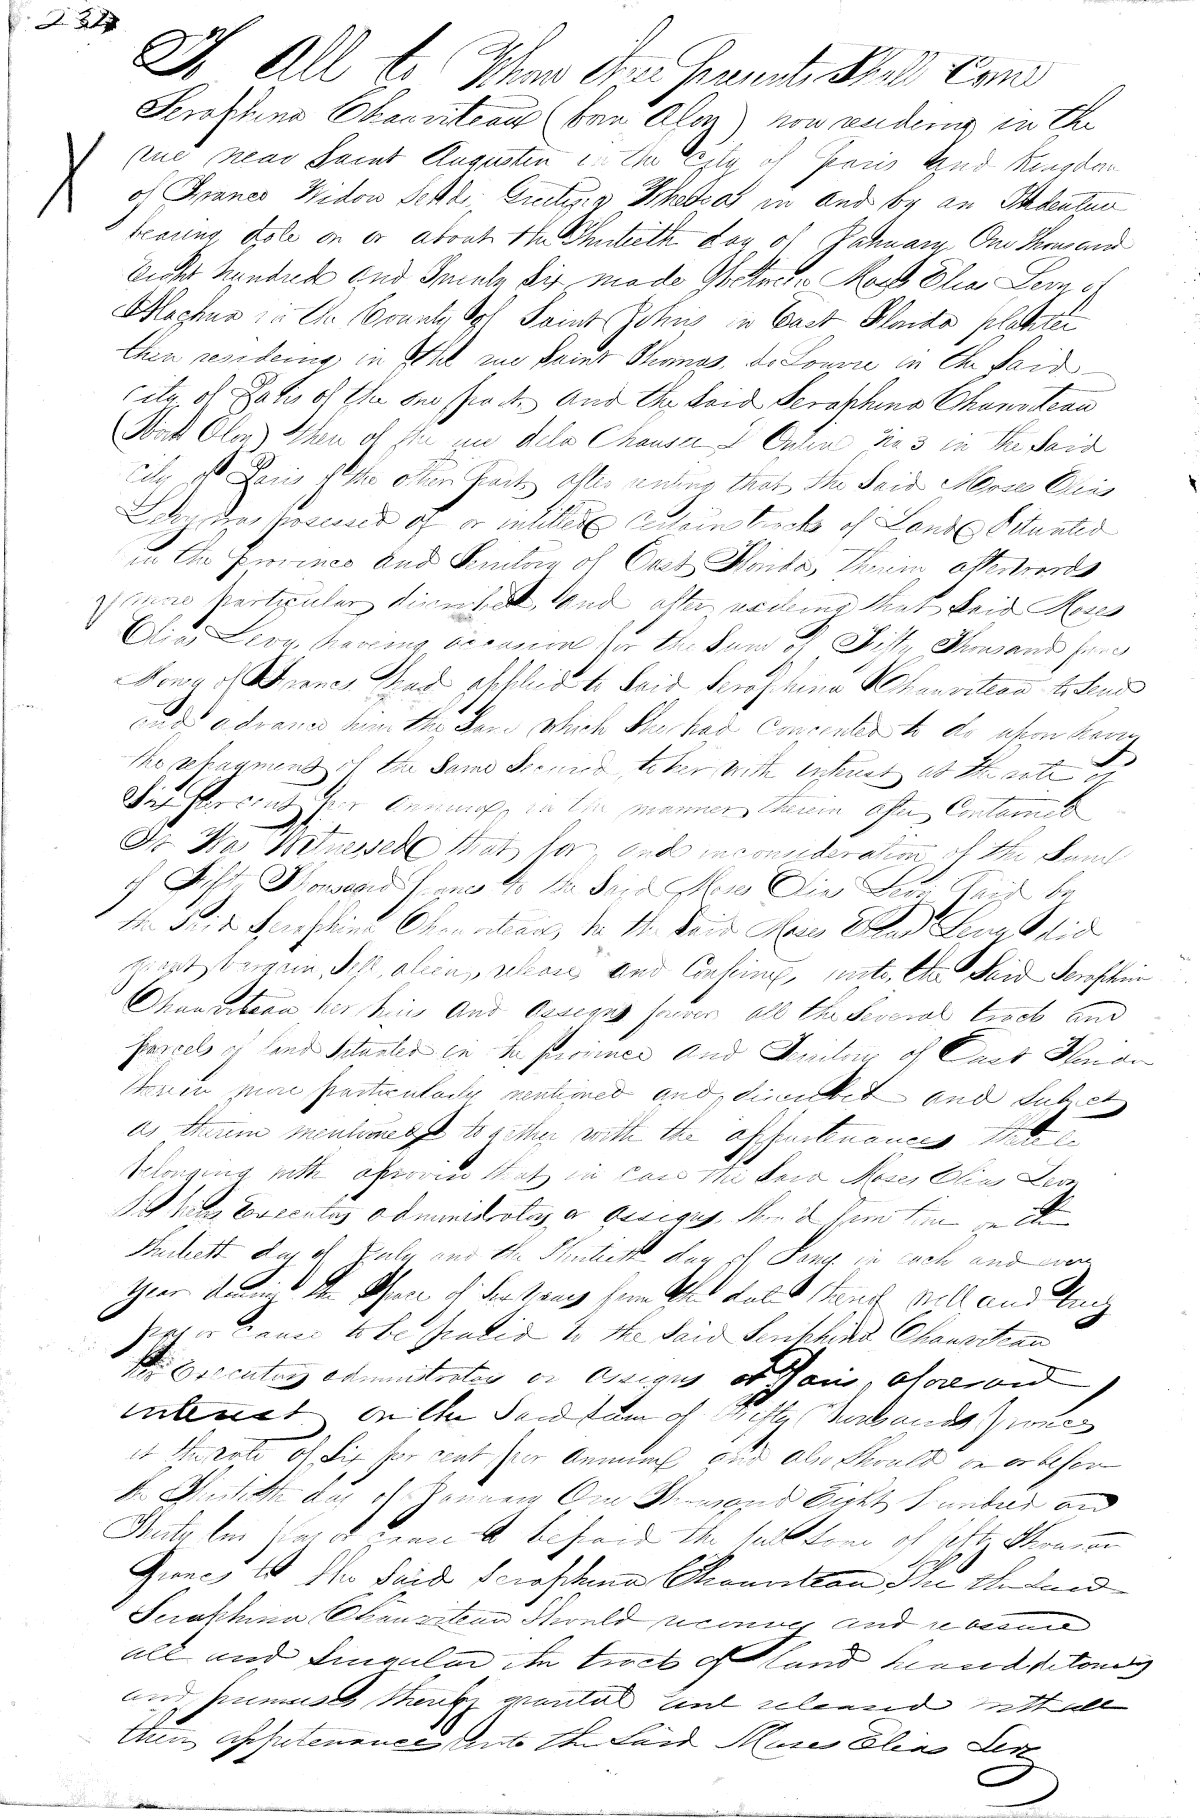 234
To All to Whom these Presents Shall Come
Seraphina Chauviteau (born Aloy) now resideing in the
rue near Saint Augustin in the City of Paris and Kingdom
of France Widow Sends Greeting Whereas in and by an Indenture
bearing date on or about the Thirtieth day of January One Thousand
Eight hundred and Twenty Six made Between Moses Elias Levy of
Alachua in the County of Saint Johns in East Florida planter
then resideing in the rue Saint Thomas du Louvre in the Said
City of Paris of the one part and the Said Seraphina Chauviteau
(Born Aloy) then of the rue dela Chausee D Antin No 3 in the Said
City of Paris of the other Part after reciting that the Said Moses Elias
Levy was possessed of or intitled certain tracks of Land Situated
in the Province and Territory of East Florida, Therein afterwards
more particular discribed and after reciteing that Said Moses
Elias Levy having occasion for the Sum of Fifty Thousand francs
Money of France had applied to Said Seraphina Chauviteau to lend
and advance him the Same which She had Concented to do upon having
the repayment of the Same Secured to her with intrust at the rate of
Six per cent per Annum, in the manner therein after Contained
It Was Witnessed that for and inconsideration of the Sum
of Fifty Thousand francs to the Said Moses Elias Levy Paid by
the Said Seraphina Chauviteau, he the Said Moses Elias Levy did
grant, bargain, Sell, alien, release and Confirm, unto, the Said Seraphin
Chauviteau her hiirs And Assigns forever all the Several tracts and
parcels of land Situated in the province and Territory of East Florida
therein more particularly mentioned and discribed and Subject
as therein mentioned together with the appurtenances thereto
belonging with aproviso that in case the Said Moses Elias Levy
his heirs Executors administrators or assigns Should from time on the
thirtieth day of July and the Thirtieth day of Jany in each and every
Year during the Space of Six Years from the date thereof well and truly
pay or cause to be paid to the Said Seriphina Chauviteau
her Executors administrators or Assigns at Paris, aforesaid
interest on the Said Sum of Fifty Thousands francs
at the rate of Six per cent per Annum and also Should on or before
the Thirtieth day of January One Thousand Eight hundred and
Thirty two pay or cause to be paid the full Sum of fifty Thousand
francs to the Said Seraphina Chauviteau She the Said
Seraphina Chauviteau Should reconvey and reassure
all and Singular the tracts of land
and premises thereby granted and released with all
their appurtenances unto the Said Moses Elias Levy